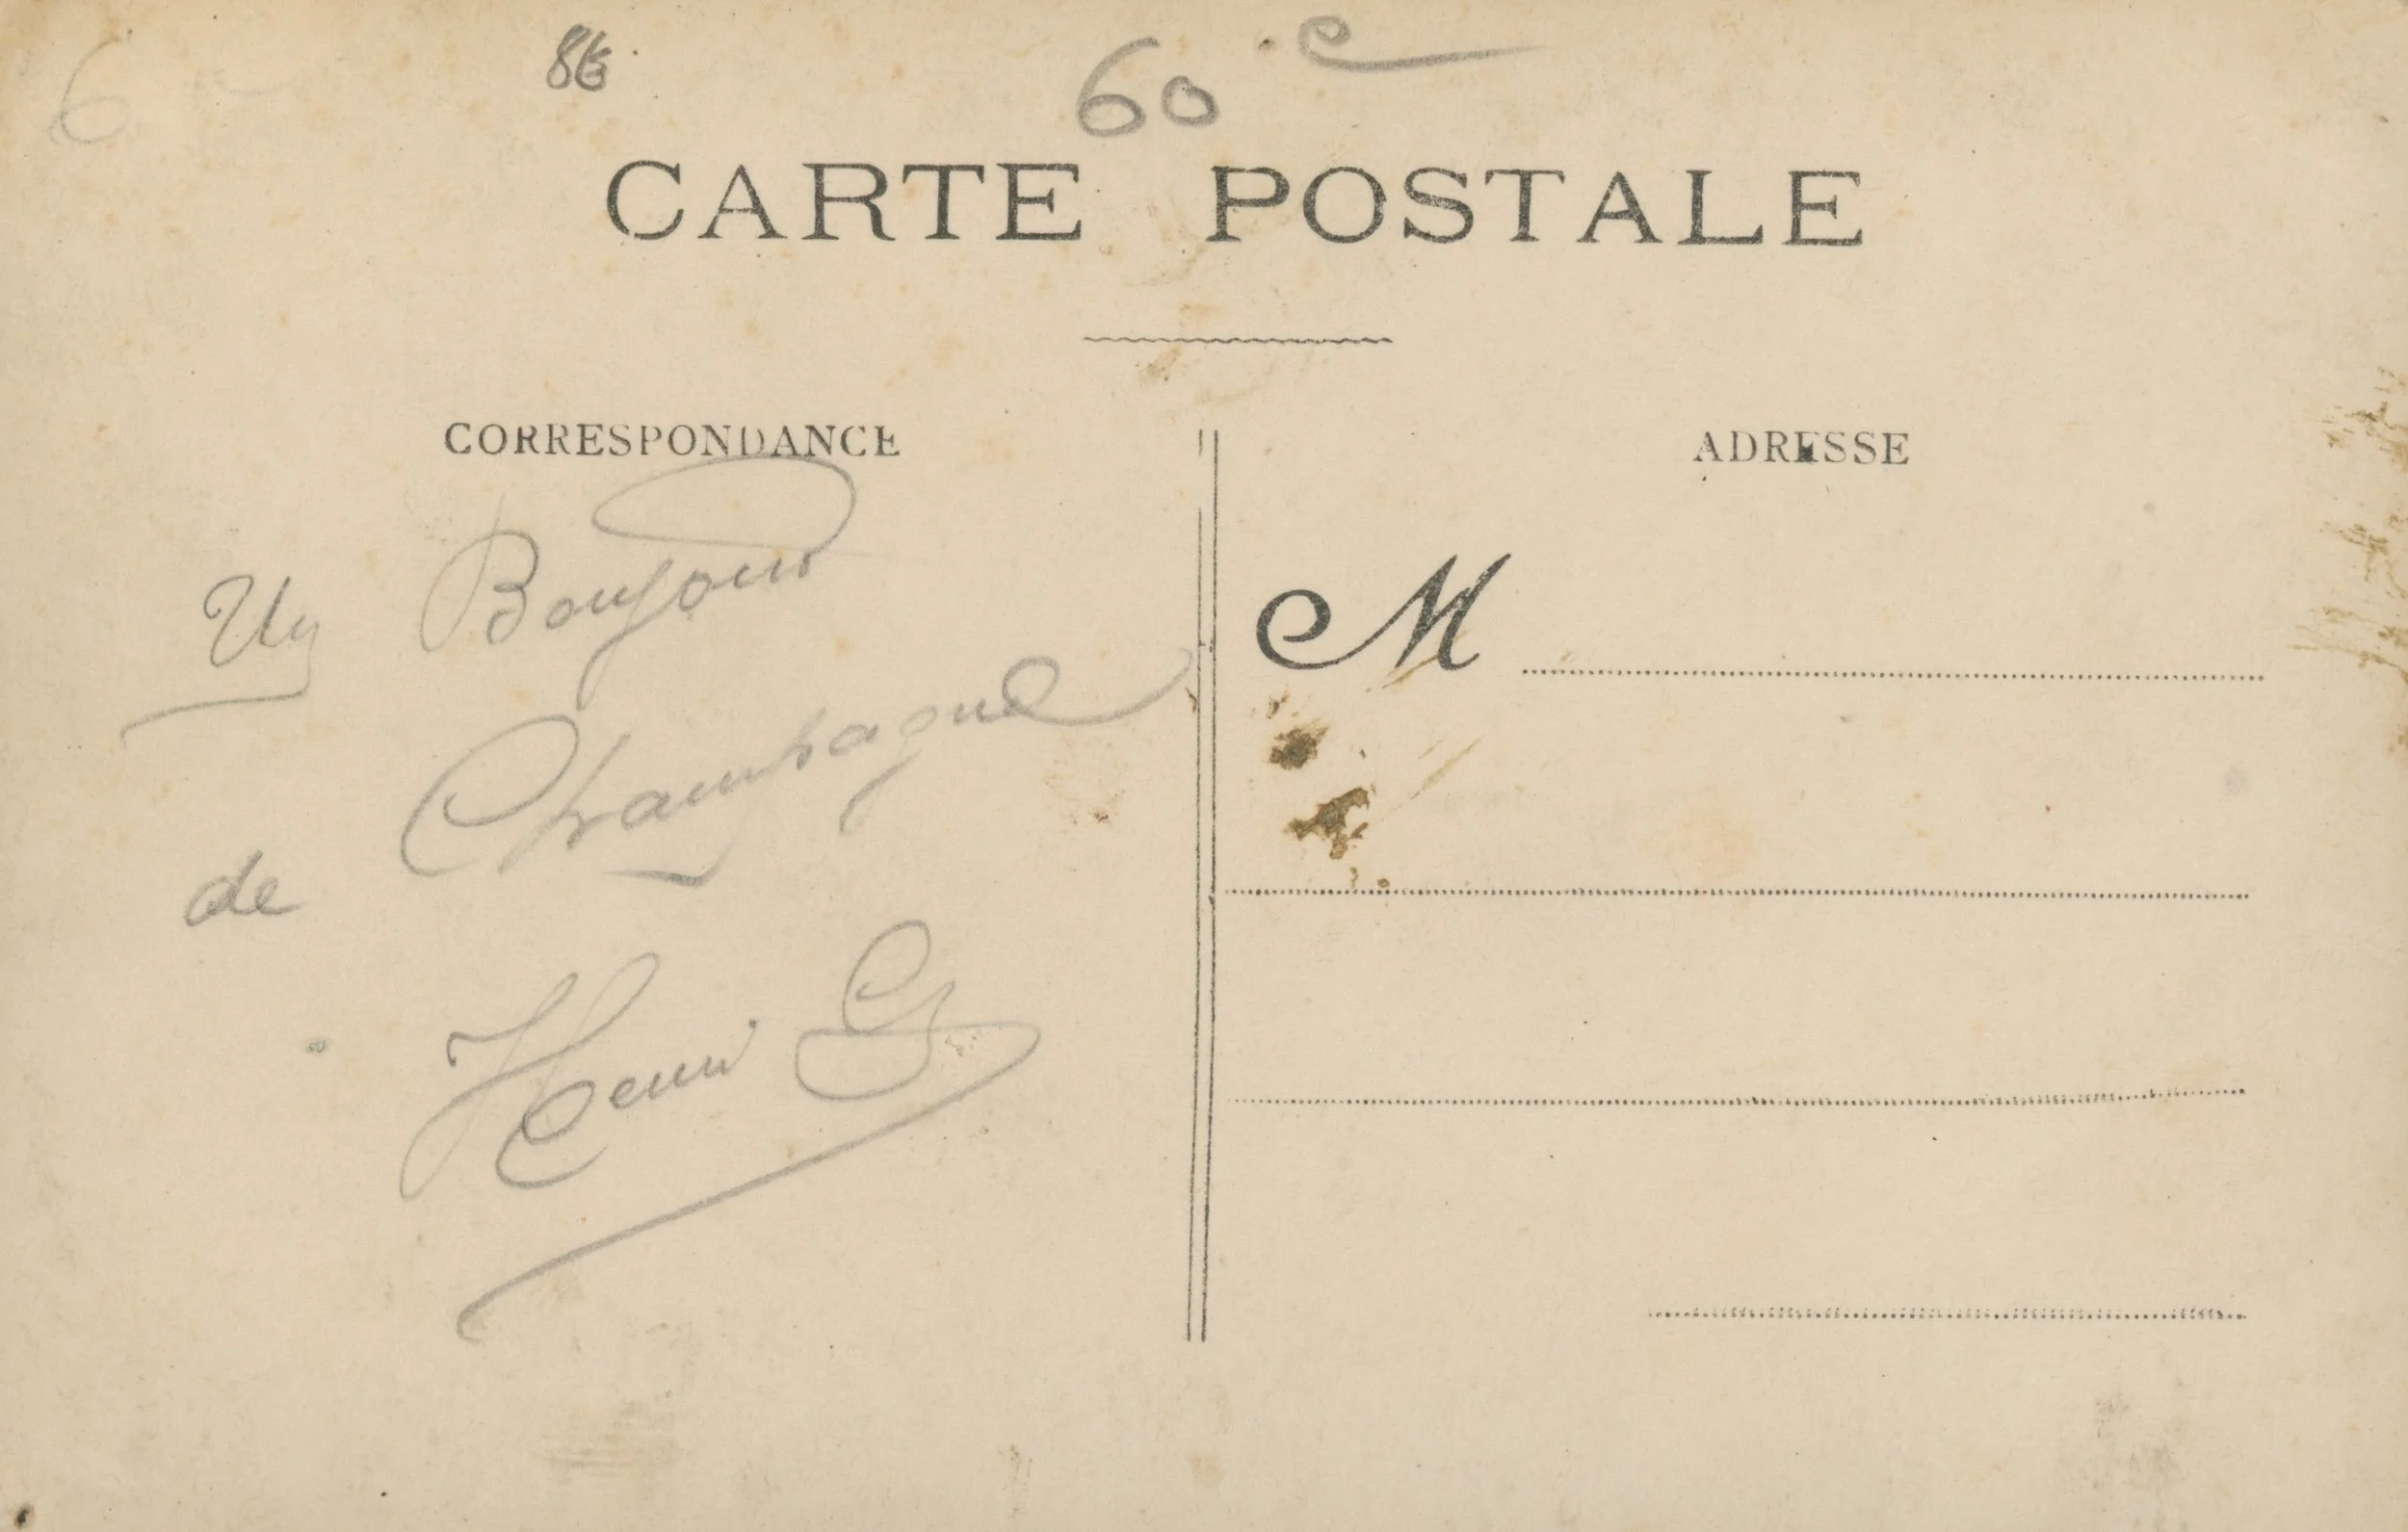 60 c
CARTE POSTALE
CORRESPONDANCE
ADRESSE
Un Bonjour
de Champagne
Henri G
M